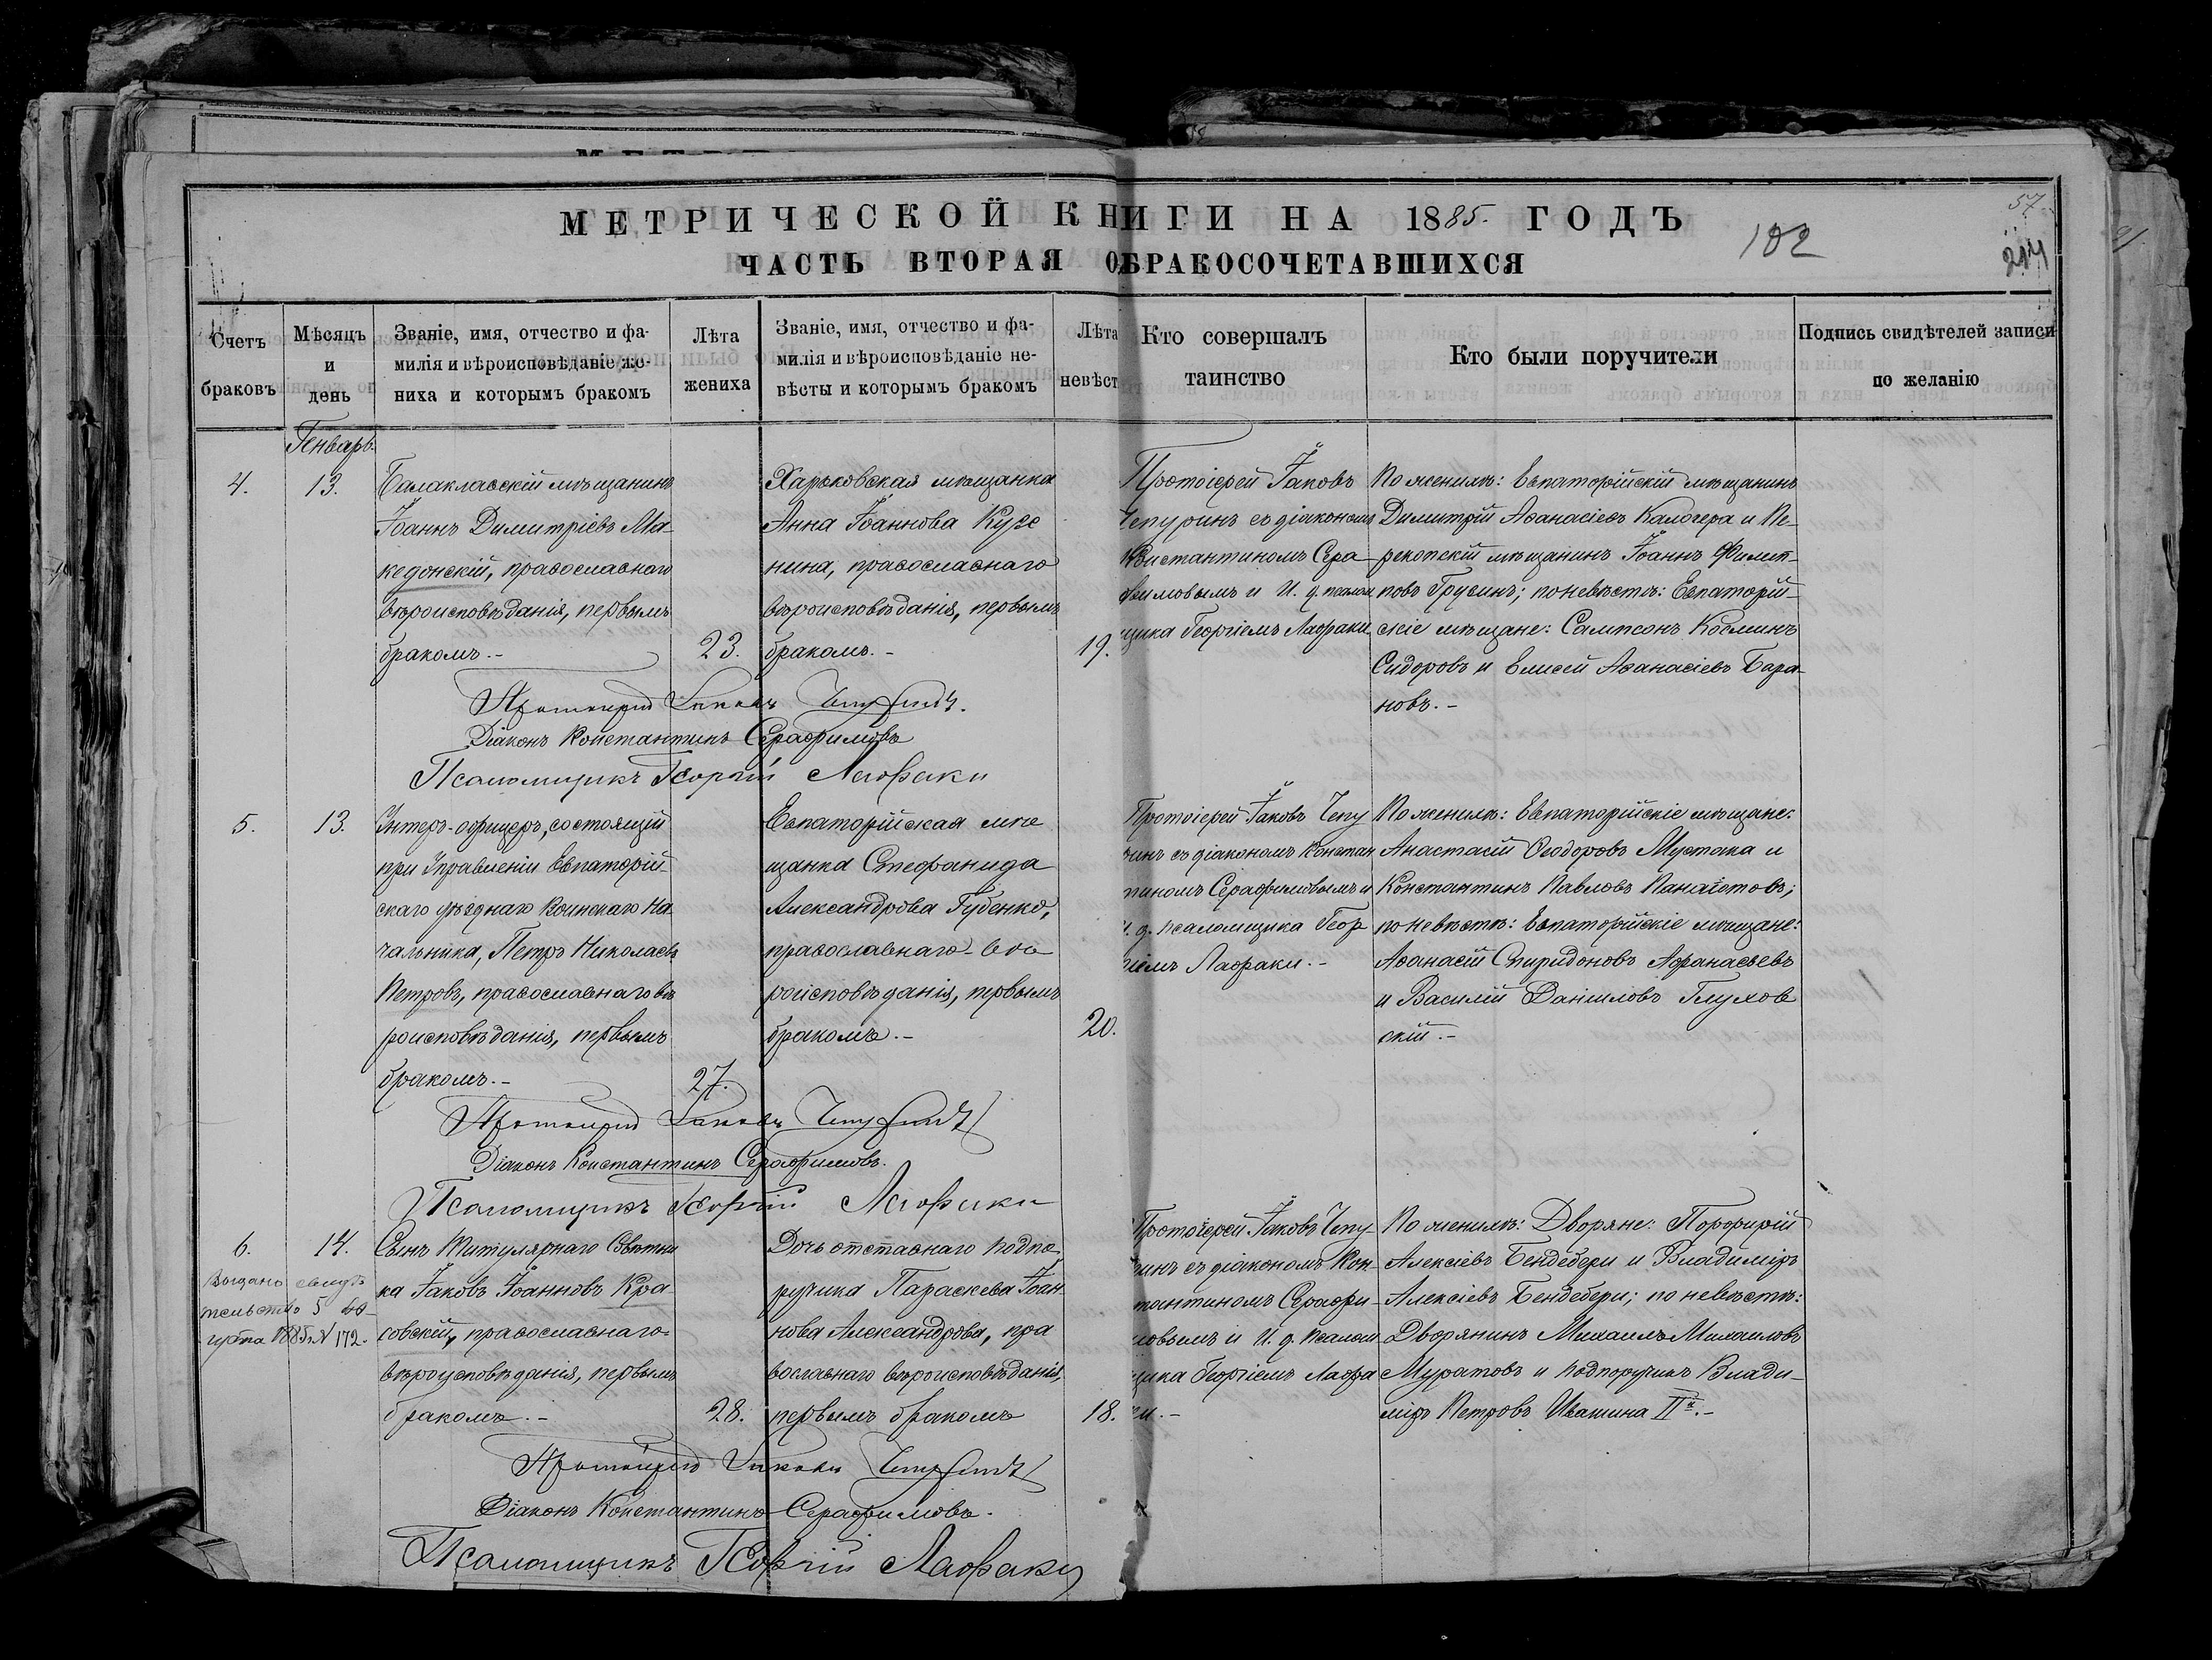 МЕТРИЧЕСКОЙ КНИГИ НА 1885. ГОДЪ
57.
102
214
ЧАСТЬ ВТОРАЯ О БРАКОСОЧЕТАВШИХСЯ
Счетъ браковъ
Мѣсяцъ и день
Званіе, имя, отчество и фа-
милія и вѣроисповѣданіе же-
ниха и которымъ бракомъ
Лѣта жениха
Званіе, имя, отчество и фа-
милія и вѣроисповѣданіе не-
вѣсты и которымъ бракомъ
Лѣта невѣст
Кто совершалъ
таинство
Кто были поручители
Подпись свидѣтелей записи
по желанію
Генварь.
4.
13.
Балаклавскій мѣщанинъ
Іоаннъ Димитріевъ Ма-
кедонскій, православнаго
вѣроисповѣданія, первымъ
бракомъ.-
23.
Харьковская мѣщанка
Анна Іоаннова Кузе
нина, православнаго
вѣроисповѣданія, первымъ
бракомъ.-
19.
Протоіерей Іаковъ
Чепуринъ съ діакономъ
Константиномъ Сера-
фимовымъ и И. д. псалом
щика Георгіемъ Лафаки
По женихѣ: Евпаторійскій мѣщанинъ
Димитрій Аѳанасіевъ Калогера и Пе-
рекопскій мѣщанинъ Іоаннъ Филип-
повъ Грусинъ; по невѣстѣ: Евпаторій-
скіе мѣщане: Сампсонъ Косминъ
Сидоровъ и Елисей Аѳанасіевъ Бара-
новъ.-
Протоіерей Іаковъ Чепуринъ.
Діаконъ Константинъ Серафимовъ
Псаломщикъ Георгій Лафаки
5.
13.
Унтеръ-офицеръ, состоящій
при Управленіи Евпаторій-
скаго уѣзднаго воинскаго На
чальника, Петръ Николаевъ
Петровъ, православнаго вѣ
роисповѣданія, первымъ
бракомъ.-
27.
Евпаторійская мѣ
щанка Стефанида
Александрова Губенко,
православнаго вѣ
роисповѣданія, первымъ
бракомъ.-
20.
Протоіерей Іаковъ Чепу
ринъ съ діакономъ Констан
тиномъ Серафимовымъ и
И. д. псаломщика Геор
гіемъ Лафаки.-
По женихѣ: Евпаторійскіе мѣщане:
Анастасій Ѳеодоровъ Мустака и
Константинъ Павловъ Панаіотовъ;
по невѣстѣ: Евпаторійскіе мѣщане:
Аѳанасій Спиридоновъ Афанасьевъ
и Василій Даніиловъ Глухов
скій.-
Протоіерей Іаковъ Чепуринъ
Діаконъ Константинъ Серафимовъ.
Псаломщикъ Георгій Лафаки
6.
14.
Выдано свидѣ
тельство 5 Ав-
густа 1885 г. № 172.
Сынъ Титулярнаго Совѣтни
ка Іаковъ Іоанновъ Кра-
совскій, православнаго
вѣроисповѣданія, первымъ
бракомъ.-
28.
Дочь отставнаго подпо-
ручика Параскева Іоан-
нова Александрова, пра
вославнаго вѣроисповѣданія,
первымъ бракомъ
18.
Протоіерей Іаковъ Чепу-
ринъ съ діакономъ Кон-
стантиномъ Серафи-
мовымъ и И. д. псалом
щика Георгіемъ Лафа
ки.-
По женихѣ: Дворяне: Порфирій
Алексіевъ Бендебери и Владиміръ
Алексіевъ Бендебери; по невѣстѣ:
Дворянинъ Михаилъ Михаиловъ
Муратовъ и подпоручикъ Влади-
міръ Петровъ Ивашина IIй.-
Протоіерей Іаковъ Чепуринъ
Діаконъ Константинъ Серафимовъ.
Псаломщикъ Георгій Лафаки